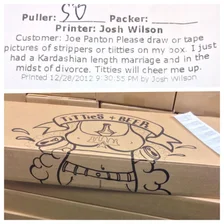 Puller: SO Packer:
Printer: Josh Wilson
Customer: Joe Panton Please draw or tape
pictures of strippers or titties on my box. I just
had a Kardashian length marriage and in the
midst of divorce. Titties will cheer me up.
Printed 12/28/2012 9:30:55 PM by Josh Wilson
TiTTieS + BEER
BEER